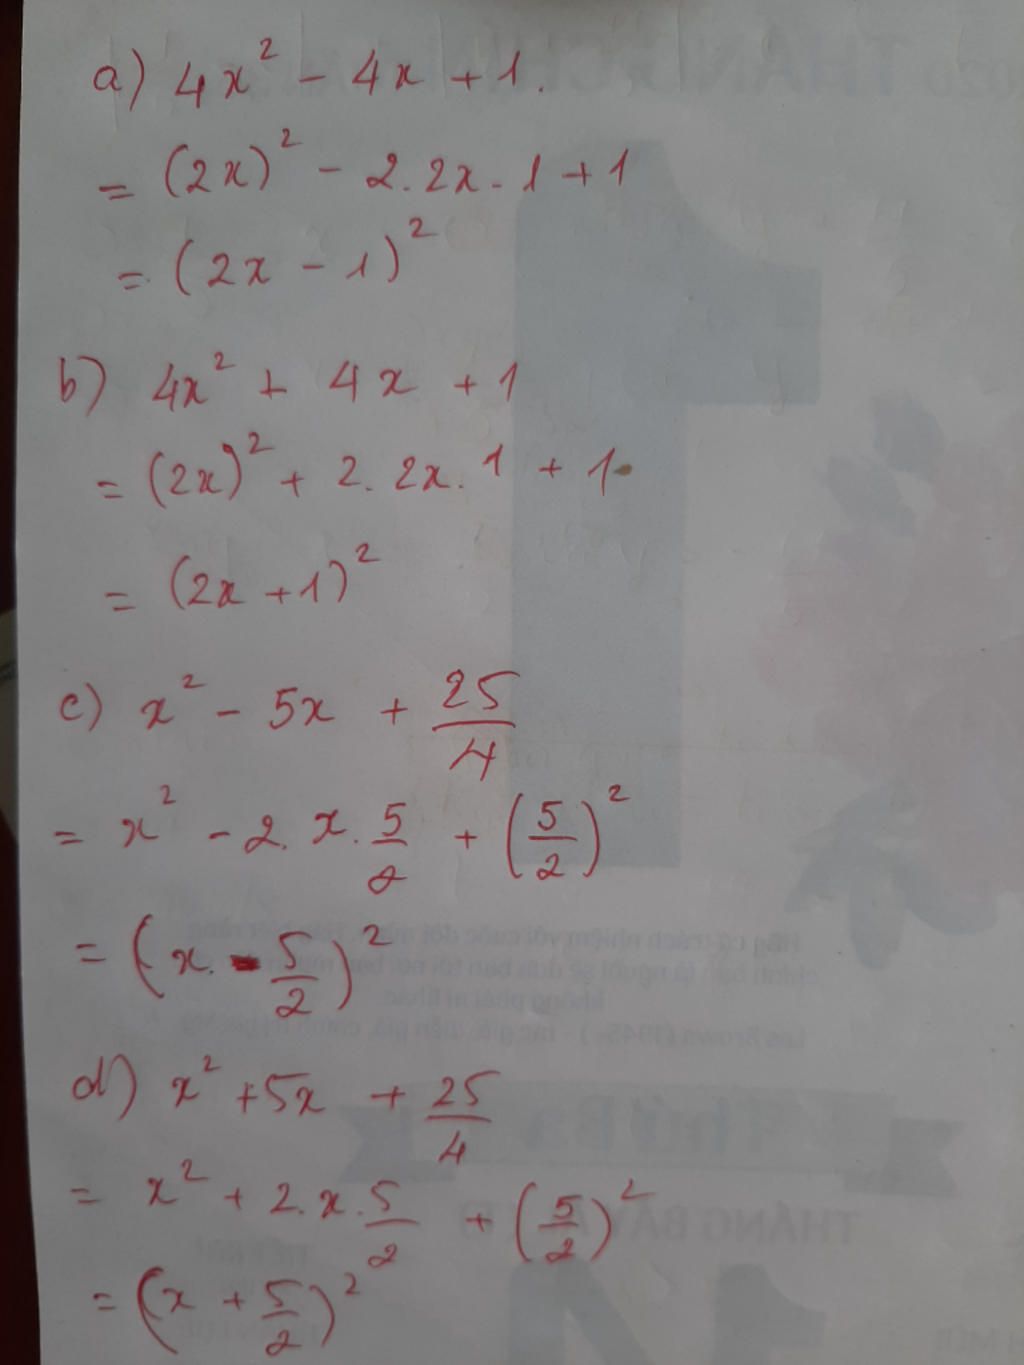 a) 4x² - 4x + 1.
= (2x)² - 2.2x.1 + 1
= (2x - 1)²
b) 4x² + 4x + 1
= (2x)² + 2.2x.1 + 1
= (2x + 1)²
c) x² - 5x + 25/4
= x² - 2.x.5/2 + (5/2)²
= (x. - 5/2)²
d) x² + 5x + 25/4
= x² + 2.x.5/2 + (5/2)²
= (x + 5/2)²